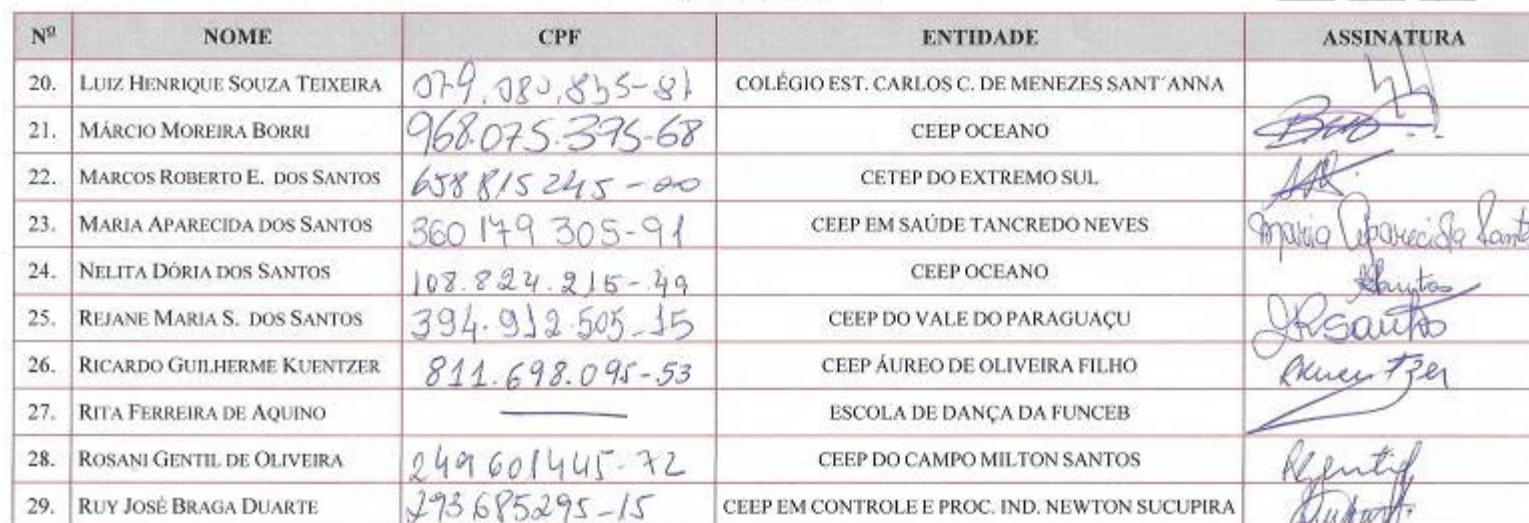 Nº NOME CPF ENTIDADE ASSINATURA
20. LUIZ HENRIQUE SOUZA TEIXEIRA 079.080.835-81 COLÉGIO EST. CARLOS C. DE MENEZES SANT´ANNA
21. MÁRCIO MOREIRA BORRI 968.075.395-68 CEEP OCEANO
22. MARCOS ROBERTO E. DOS SANTOS 658 815 245-00 CETEP DO EXTREMO SUL
23. MARIA APARECIDA DOS SANTOS 360 179 305-91 CEEP EM SAÚDE TANCREDO NEVES Maria Aparecida Santo
24. NELITA DÓRIA DOS SANTOS 108.824.215-49 CEEP OCEANO NSantos
25. REJANE MARIA S. DOS SANTOS 394.912.505-15 CEEP DO VALE DO PARAGUAÇU JRSantos
26. RICARDO GUILHERME KUENTZER 811.698.095-53 CEEP ÁUREO DE OLIVEIRA FILHO Kuentzer
27. RITA FERREIRA DE AQUINO ESCOLA DE DANÇA DA FUNCEB
28. ROSANI GENTIL DE OLIVEIRA 249601445-72 CEEP DO CAMPO MILTON SANTOS RGentil
29. RUY JOSÉ BRAGA DUARTE 293685295-15 CEEP EM CONTROLE E PROC. IND. NEWTON SUCUPIRA